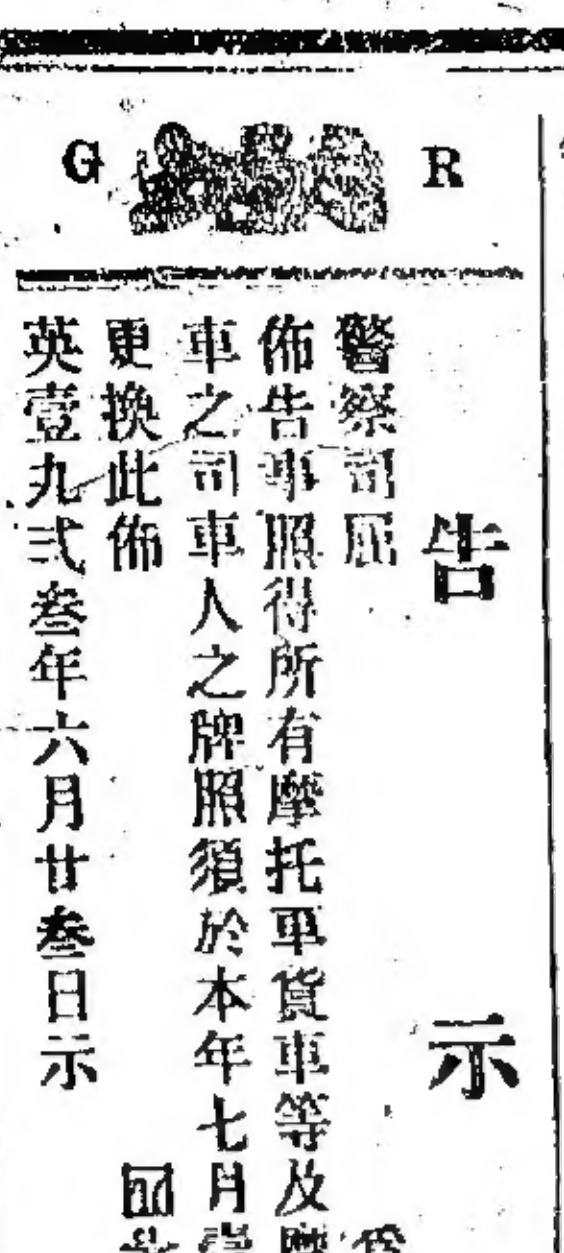 G R
告示
警察司屈 為
佈告事照得所有摩托車貨車等及摩
車之司車人之牌照須於本年七月
更換此佈
英壹九弍叁年六月廿叁日示